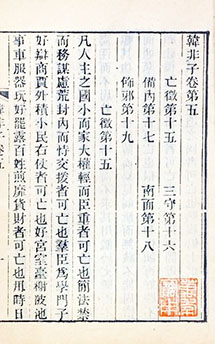 韓非子卷第五
亡徵第十五　三守第十六
備內第十七　南面第十八
飾邪第十九
亡徵第十五
凡人主之國小而家大權輕而臣重者可亡也簡法禁
而務謀慮荒封內而恃交援者可亡也羣臣為學門子
好辯商賈外積小民右仗者可亡也好宮室臺榭陂池
事車服器玩好罷露百姓煎靡貨財者可亡也用時日